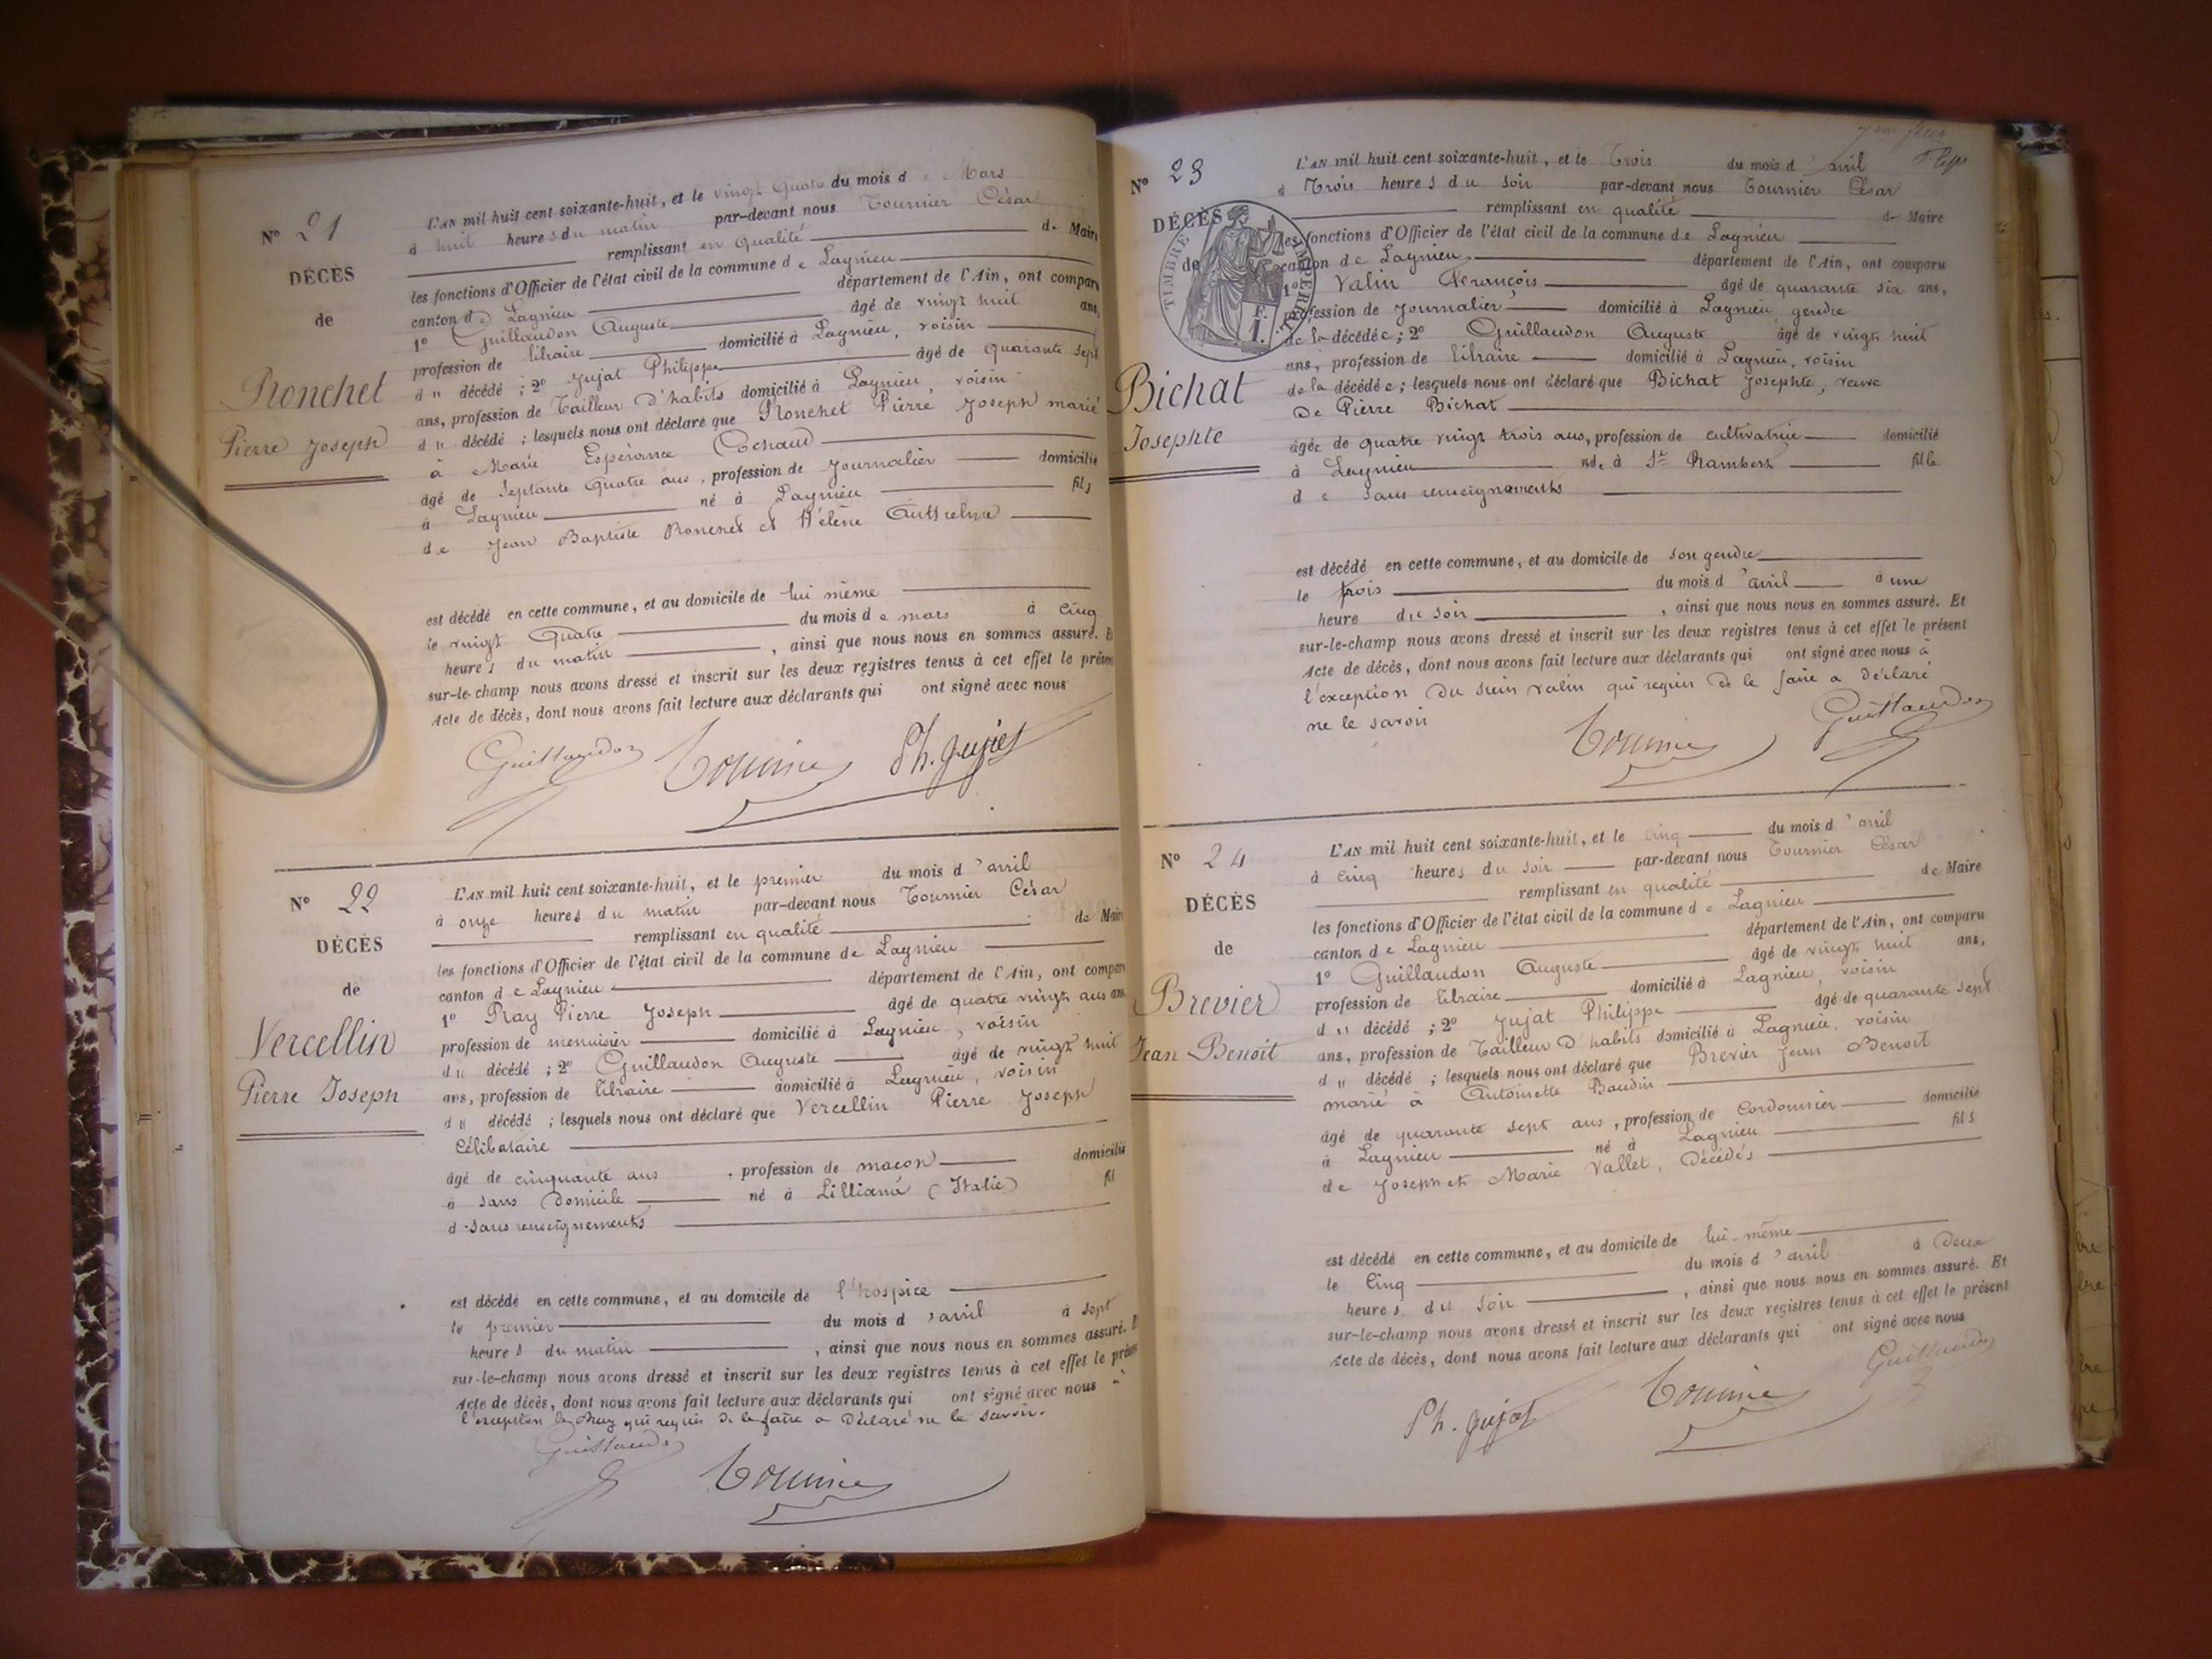 N° 21
DÉCÈS
de
Ronchet
Pierre Joseph
L'AN mil huit cent soixante-huit, et le vingt quatre du mois de Mars
à huit heures du matin par-devant nous Tournier César
remplissant en qualité de Maire
les fonctions d'Officier de l'état civil de la commune de Lagnieu
canton de Lagnieu département de l'Ain, ont comparu
1° Guillaudon Auguste âgé de vingt huit ans,
profession de libraire domicilié à Lagnieu, voisin
du décédé ; 2° Jujat Philippe âgé de quarante sept
ans, profession de Tailleur d'habits domicilié à Lagnieu, voisin
du décédé ; lesquels nous ont déclaré que Ronchet Pierre Joseph marié
à Marie Espérance Cochaud
âgé de septante quatre ans, profession de Journalier domicilié
à Lagnieu né à Lagnieu fils
de Jean Baptiste Ronchet et Hélène Anthelme
est décédé en cette commune, et au domicile de lui même
le vingt quatre du mois de mars à cinq
heures du matin, ainsi que nous nous en sommes assuré. Et
sur-le-champ nous avons dressé et inscrit sur les deux registres tenus à cet effet le présent
Acte de décès, dont nous avons fait lecture aux déclarants qui ont signé avec nous
Guillaudon Tournier Ph. Jujat
N° 22
DÉCÈS
de
Vercellin
Pierre Joseph
L'AN mil huit cent soixante-huit, et le premier du mois d'avril
à onze heures du matin par-devant nous Tournier César
remplissant en qualité de Maire
les fonctions d'Officier de l'état civil de la commune de Lagnieu
canton de Lagnieu département de l'Ain, ont comparu
1° Ray Pierre Joseph âgé de quatre vingt ans ans
profession de menuisier domicilié à Lagnieu, voisin
du décédé ; 2° Guillaudon Auguste âgé de vingt huit
ans, profession de libraire domicilié à Lagnieu, voisin
du décédé ; lesquels nous ont déclaré que Vercellin Pierre Joseph
Célibataire
âgé de cinquante ans, profession de maçon domicilié
à sans domicile né à Lilliana (Italie) fil
d sans renseignements
est décédé en cette commune, et au domicile de l'hospice
le premier du mois d'avril à sept
heures du matin, ainsi que nous nous en sommes assuré. Et
sur-le-champ nous avons dressé et inscrit sur les deux registres tenus à cet effet le présent
Acte de décès, dont nous avons fait lecture aux déclarants qui ont signé avec nous à
l'exception de Ray qui requis de le faire a déclaré ne le savoir.
Guillaudon Tournier
N° 23
DÉCÈS
de
TIMBRE IMPÉRIAL
F.
1.
Bichat
Josephte
L'AN mil huit cent soixante-huit, et le Trois du mois d'avril
à Trois heures du soir par-devant nous Tournier César
remplissant en qualité de Maire
les fonctions d'Officier de l'état civil de la commune de Lagnieu
canton de Lagnieu département de l'Ain, ont comparu
1° Valin François âgé de quarante six ans,
profession de Journalier domicilié à Lagnieu gendre
de la décédée ; 2° Guillaudon Auguste âgé de vingt huit
ans, profession de libraire domicilié à Lagnieu, voisin
de la décédée ; lesquels nous ont déclaré que Bichat Josephte, veuve
De Pierre Bichat
âgée de quatre vingt trois ans, profession de cultivatrice domicilié
à Lagnieu née à St Rambert fille
de sans renseignements
est décédé en cette commune, et au domicile de son gendre
le trois du mois d'avril à une
heure du soir, ainsi que nous nous en sommes assuré. Et
sur-le-champ nous avons dressé et inscrit sur les deux registres tenus à cet effet le présent
Acte de décès, dont nous avons fait lecture aux déclarants qui ont signé avec nous à
l'exception du sieur valin qui requis de le faire a déclaré
ne le savoir
Tournier Guillaudon
N° 24
DÉCÈS
de
Brevier
Jean Benoit
L'AN mil huit cent soixante-huit, et le cinq du mois d'avril
à cinq heures du soir par-devant nous Tournier César
remplissant en qualité de Maire
les fonctions d'Officier de l'état civil de la commune de Lagnieu
canton de Lagnieu département de l'Ain, ont comparu
1° Guillaudon Auguste âgé de vingt huit ans,
profession de libraire domicilié à Lagnieu, voisin
du décédé ; 2° Jujat Philippe âgé de quarante sept
ans, profession de Tailleur d'habits domicilié à Lagnieu, voisin
du décédé ; lesquels nous ont déclaré que Brevier Jean Benoit
marié à Antoinette Baudin
âgé de quarante sept ans, profession de cordonnier domicilié
à Lagnieu né à Lagnieu fils
de Joseph et Marie Vallet, Décédés
est décédé en cette commune, et au domicile de lui-même
le cinq du mois d'avril à Deux
heures du soir, ainsi que nous nous en sommes assuré. Et
sur-le-champ nous avons dressé et inscrit sur les deux registres tenus à cet effet le présent
Acte de décès, dont nous avons fait lecture aux déclarants qui ont signé avec nous
Ph. Jujat Tournier Guillaudon